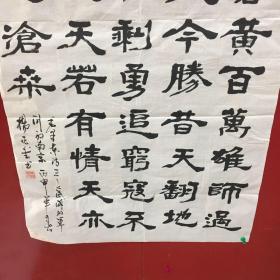 黃百萬雄師過
今勝昔天翻地
剩勇追窮寇不
天若有情天亦
滄桑